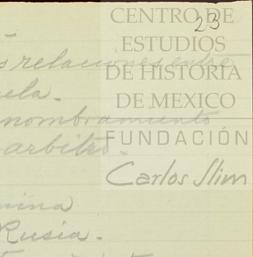 23
CENTRO DE
ESTUDIOS
DE HISTORIA
DE MEXICO
FUNDACIÓN
Carlos Slim
-
s relaciones entre
ela.-
nombramiento
arbitro.-
nina
Rusia.-